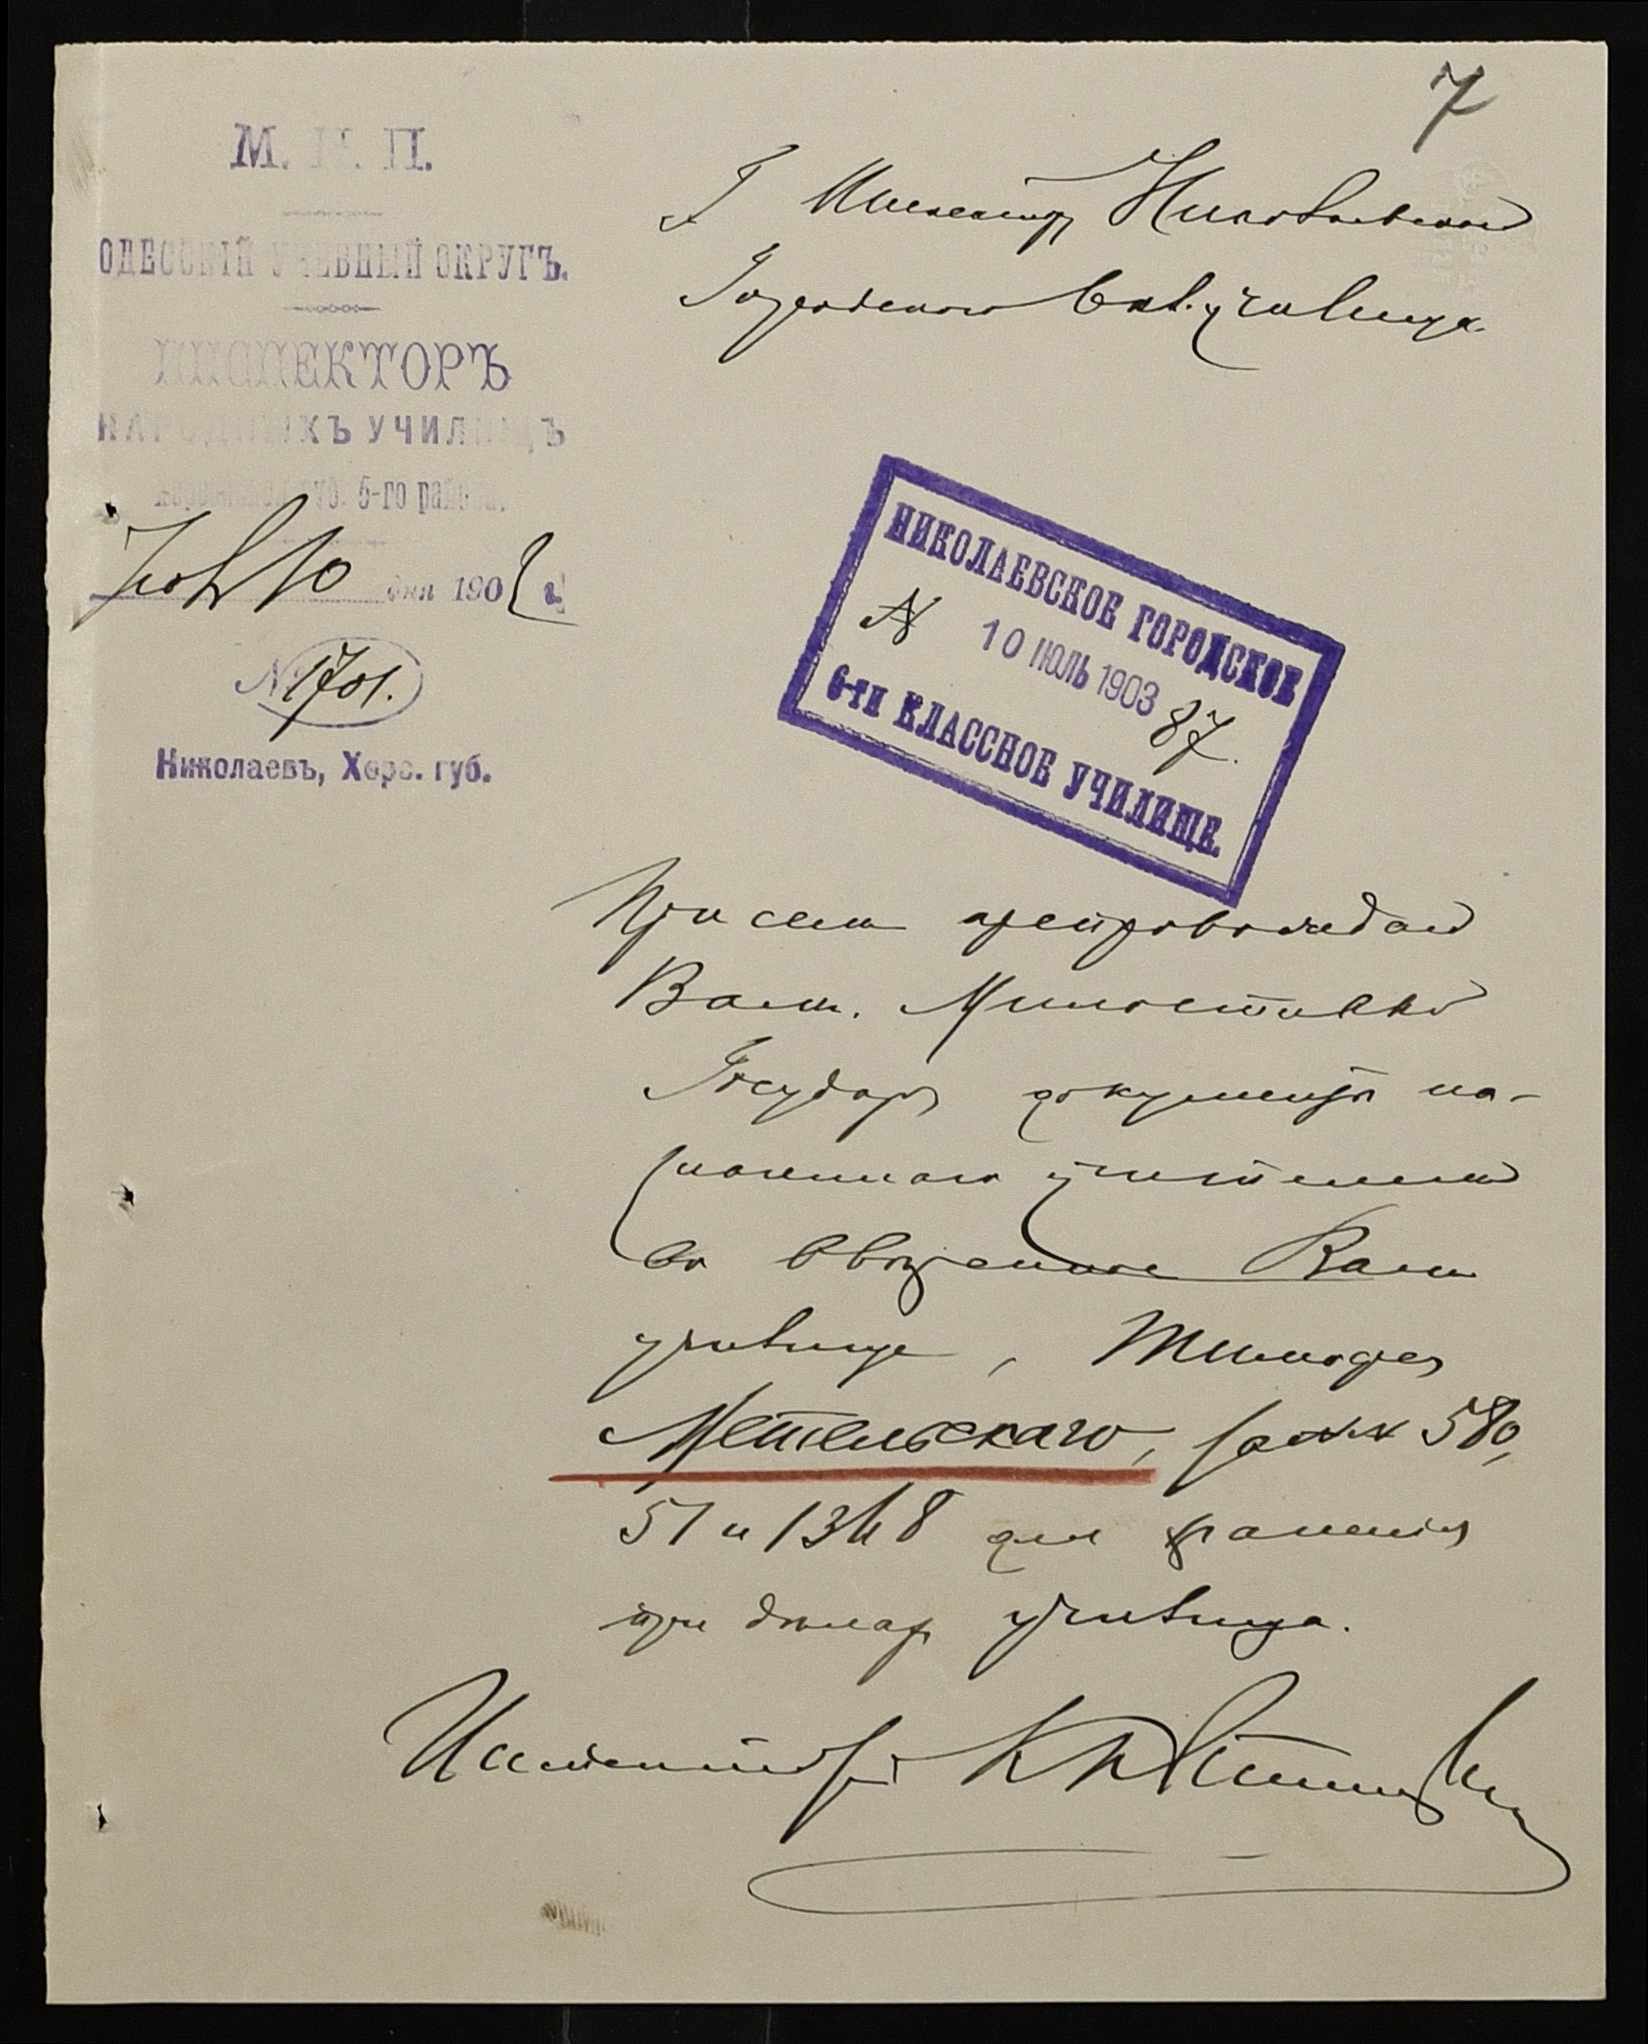 7
М. Н. П.
ОДЕССКІЙ УЧЕБНЫЙ ОКРУГЪ.
ИНСПЕКТОРЪ
НАРОДНЫХЪ УЧИЛИЩЪ
Херсонской губ. 5-го района.
10 дня 190 г.
№ 1701.
Николаевъ, Херс. губ.
Г Инспектору Николаевскаго
Городского 6 кл. училища.
НИКОЛАЕВСКОЕ ГОРОДСКОЕ
№ 10 ІЮЛЬ 1903 87.
6-ТИ КЛАССНОЕ УЧИЛИЩЕ.
При семъ препровождаю
Вамъ, Милостивый
Государь документы на-
значеннаго учителемъ
во ввѣренное Вамъ
училище, Тимофея
Метельскаго, за №№ 580,
51 и 1348 для храненія
при дѣлахъ училища.
Инспекторъ